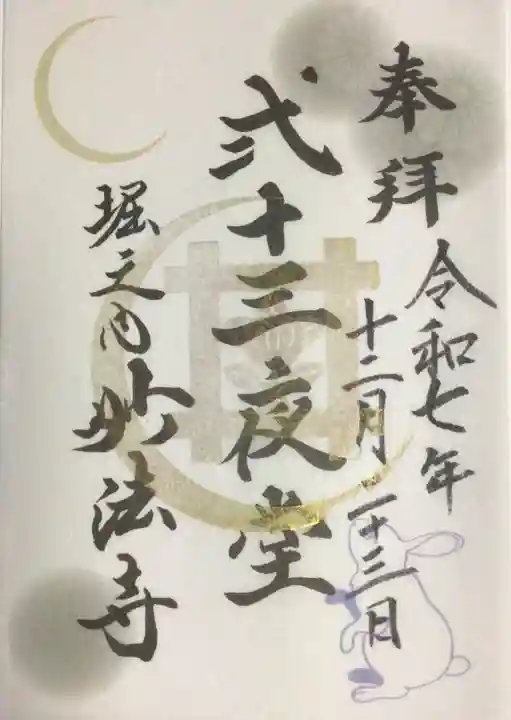 奉拝
令和七年
十二月二十三日
弐十三夜堂
堀之内妙法寺